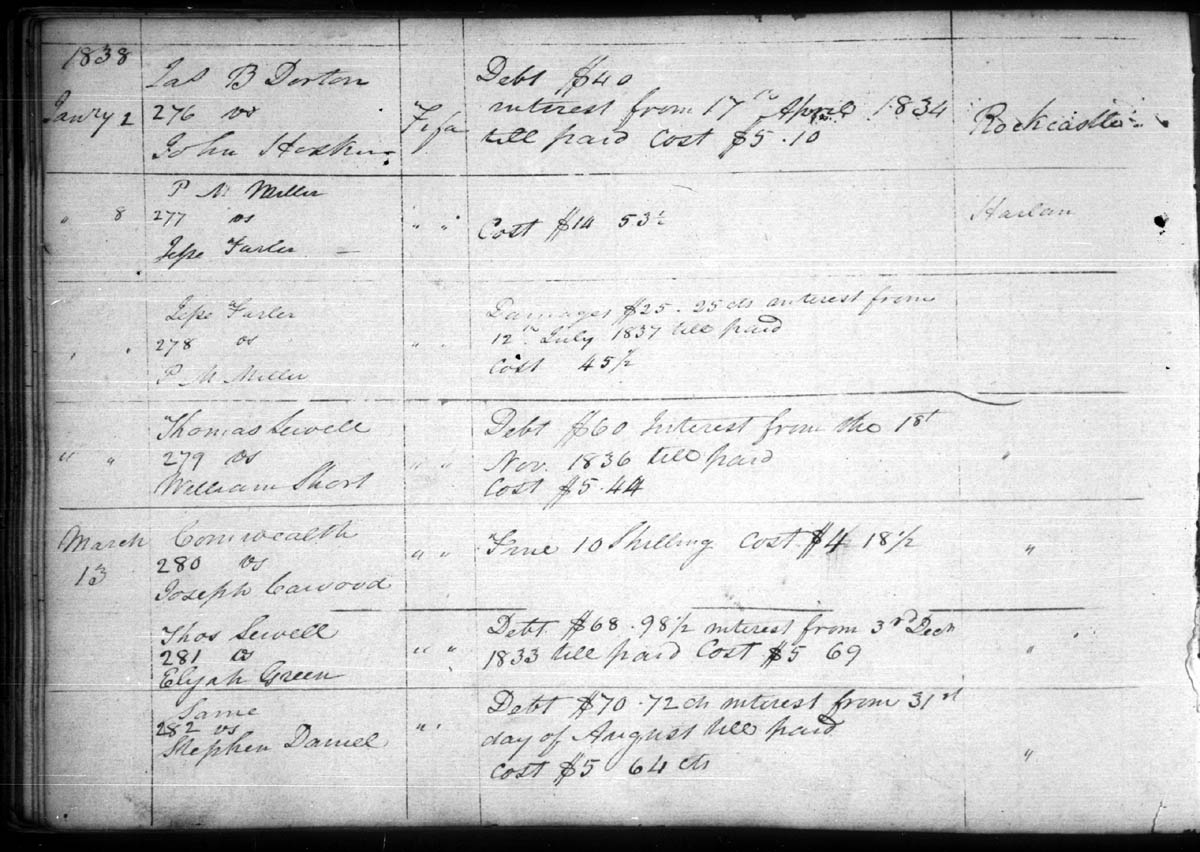 1838
Jas B Dorton
Debt $40
Janry 2 276 vs Fifa interest from 17th April 1834 Rockcastle
John Hoskins till paid Cost $5.10
P M Miller
" 8 277 vs " " Cost $14 53½ Harlan
Jesse Farler
Jesse Farler Damages $25.25 cts interest from
" " 278 vs " " 12th July 1837 till paid
P M Miller Cost 45½
Thomas Sewell Debt $60 Interest from the 1st
" " 279 vs " " Nov. 1836 till paid "
William Short Cost $5.44
March Comwealth
280 vs " " Fine 10 Shilling Cost $4 18½ "
13 Joseph Cawood
Thos Sewell Debt $68.98½ interest from 3rd Decr
281 vs " " 1833 till paid Cost $5 69 "
Elijah Green
Same Debt $70.72 cts interest from 31st
282 vs " " day of August till paid
Stephen Daniel Cost $5 64 cts "